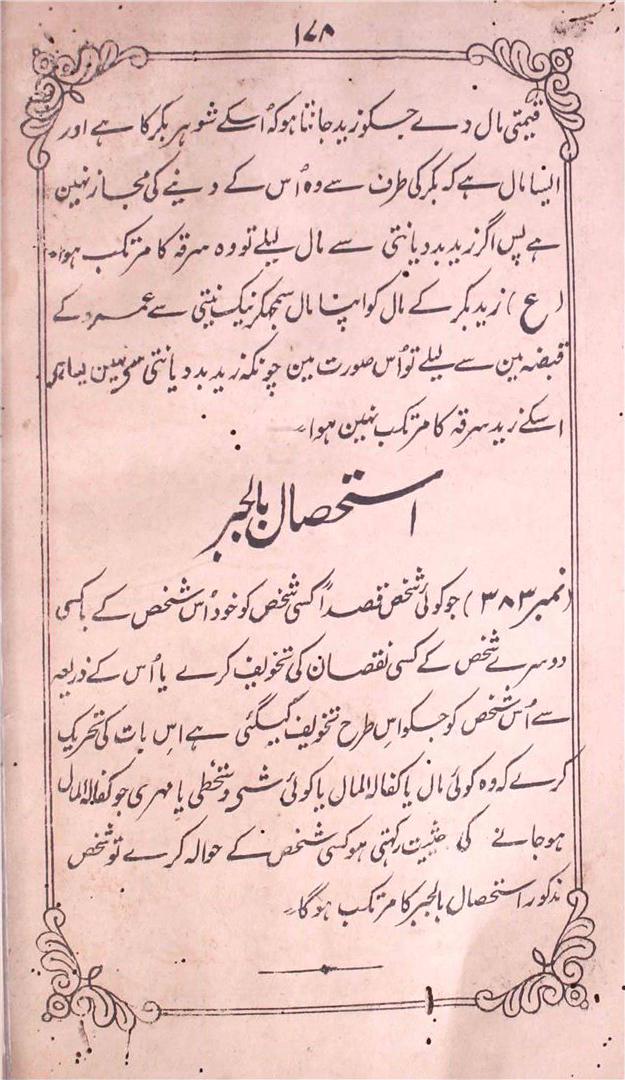 ۱۷۸
قیمتی مال دے جسکو زید جانتا ہو کہ اُسکے شوہر بکر کا ہے اور
ایسا مال ہے کہ بکر کی طرف سے وہ اُس کے دینے کی مجاز نہین
ہے پس اگر زید بددیانتی سے مال لیلے تو وہ سرقہ کا مرتکب ہوا۔
(ع) زید بکر کے مال کو اپنا مال سمجھکر نیک نیتی سے عمرو کے
قبضہ مین سے لیلے تو اُس صورت مین چونکہ زید بددیانتی سے نہین لیتا ہے
اسکے زید سرقہ کا مرتکب نہین ہوا۔
استحصال بالجبر
(نمبر ۳۸۳) جو کوئی شخص قصداً کسی شخص کو خود اُس شخص کے یا کسی
دوسرے شخص کے کسی نقصان کی تخویف کرے یا اُس کے ذریعہ
سے اُس شخص کو جسکو اس طرح تخویف کیگئی ہے اِس بات کی تحریک
کرے کہ وہ کوئی مال یا کفالۃ المال یا کوئی شئی دستخطی یا مہری جو کفالۃ المال
ہو جانے کی حیثیت رکہتی ہو کسی شخص کے حوالہ کرے تو شخص
مذکور استحصال بالجبر کا مرتکب ہوگا۔